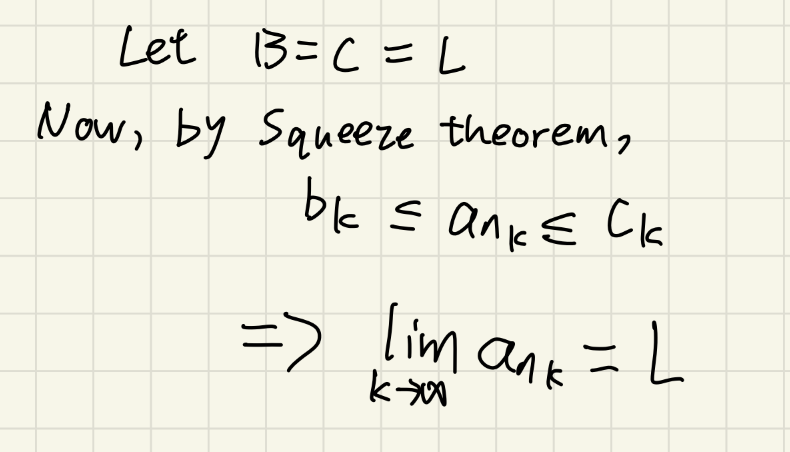 Let B = C = L
Now, by Squeeze theorem,
b_k ≤ a_{n_k} ≤ C_k
=> lim_{k→∞} a_{n_k} = L